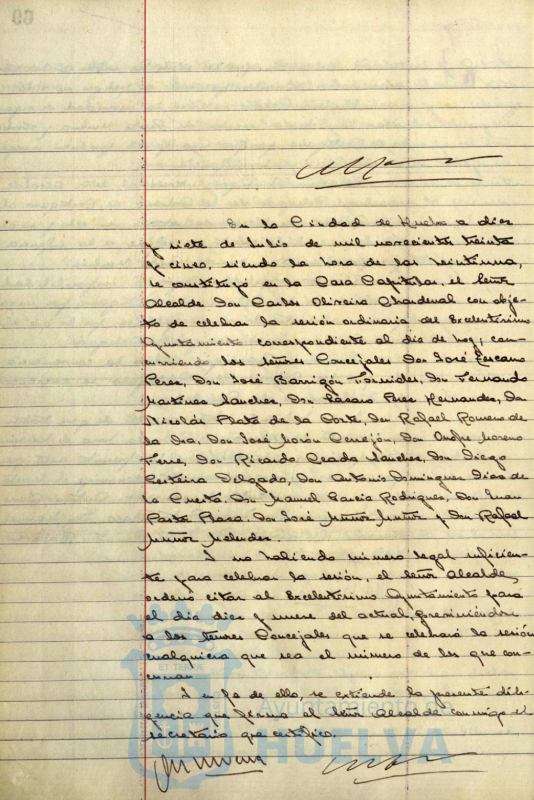 En la Ciudad de Huelva a diez
y siete de Julio de mil novecientos treinta
y cinco, siendo la hora de las veintiuna,
se constituyó en la Casa Capitular, el Señor
Alcalde Don Carlos Oliveira Chardenal con obje-
to de celebrar la sesión ordinaria del Excelentísimo
Ayuntamiento correspondiente al día de hoy; con-
curriendo los señores Concejales Don José Lescano
Perez, Don José Barrigón Fornieles, Don Fernando
Martinez Sanchez, Don Cesareo Perez Hernandez, Don
Nicolás Plata de la Corte, Don Rafael Romero de
la Osa, Don José Morón Cerrejón, Don Onofre Moreno
Ferre, Don Ricardo Ceada Sanchez, Don Diego
Delgado, Don Antonio Dominguez Dias de
la Cuesta, Don Manuel Garcia Rodriguez, Don Juan
Don José Muñoz Muñoz y Don Rafael
Muñoz Melendez.
Y no habiendo número legal suficien-
te para celebrar la sesión, el señor Alcalde,
ordenó citar al Excelentísimo Ayuntamiento para
el día diez y nueve del actual, previniéndose
a los señores Concejales que se celebrará la sesión
cualquiera que sea el número de los que con-
curran.
Y en fe de ello, se extiende la presente dili-
gencia que firma el Señor Alcalde conmigo el
secretario que certifico.
Ayuntamiento de
HUELVA